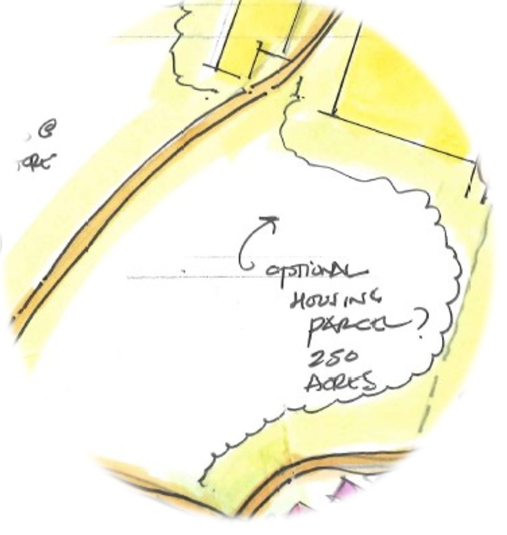 @
OPTIONAL
HOUSING
PARCEL?
250
ACRES